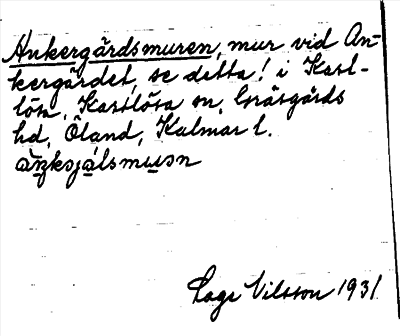 Ankergårdsmuren, mur vid An-
kergärdet, se detta! i Kast-
lösa, Kastlösa sn, Gräsgårds
hd, Öland, Kalmar l.
Lage Nilsson 1931